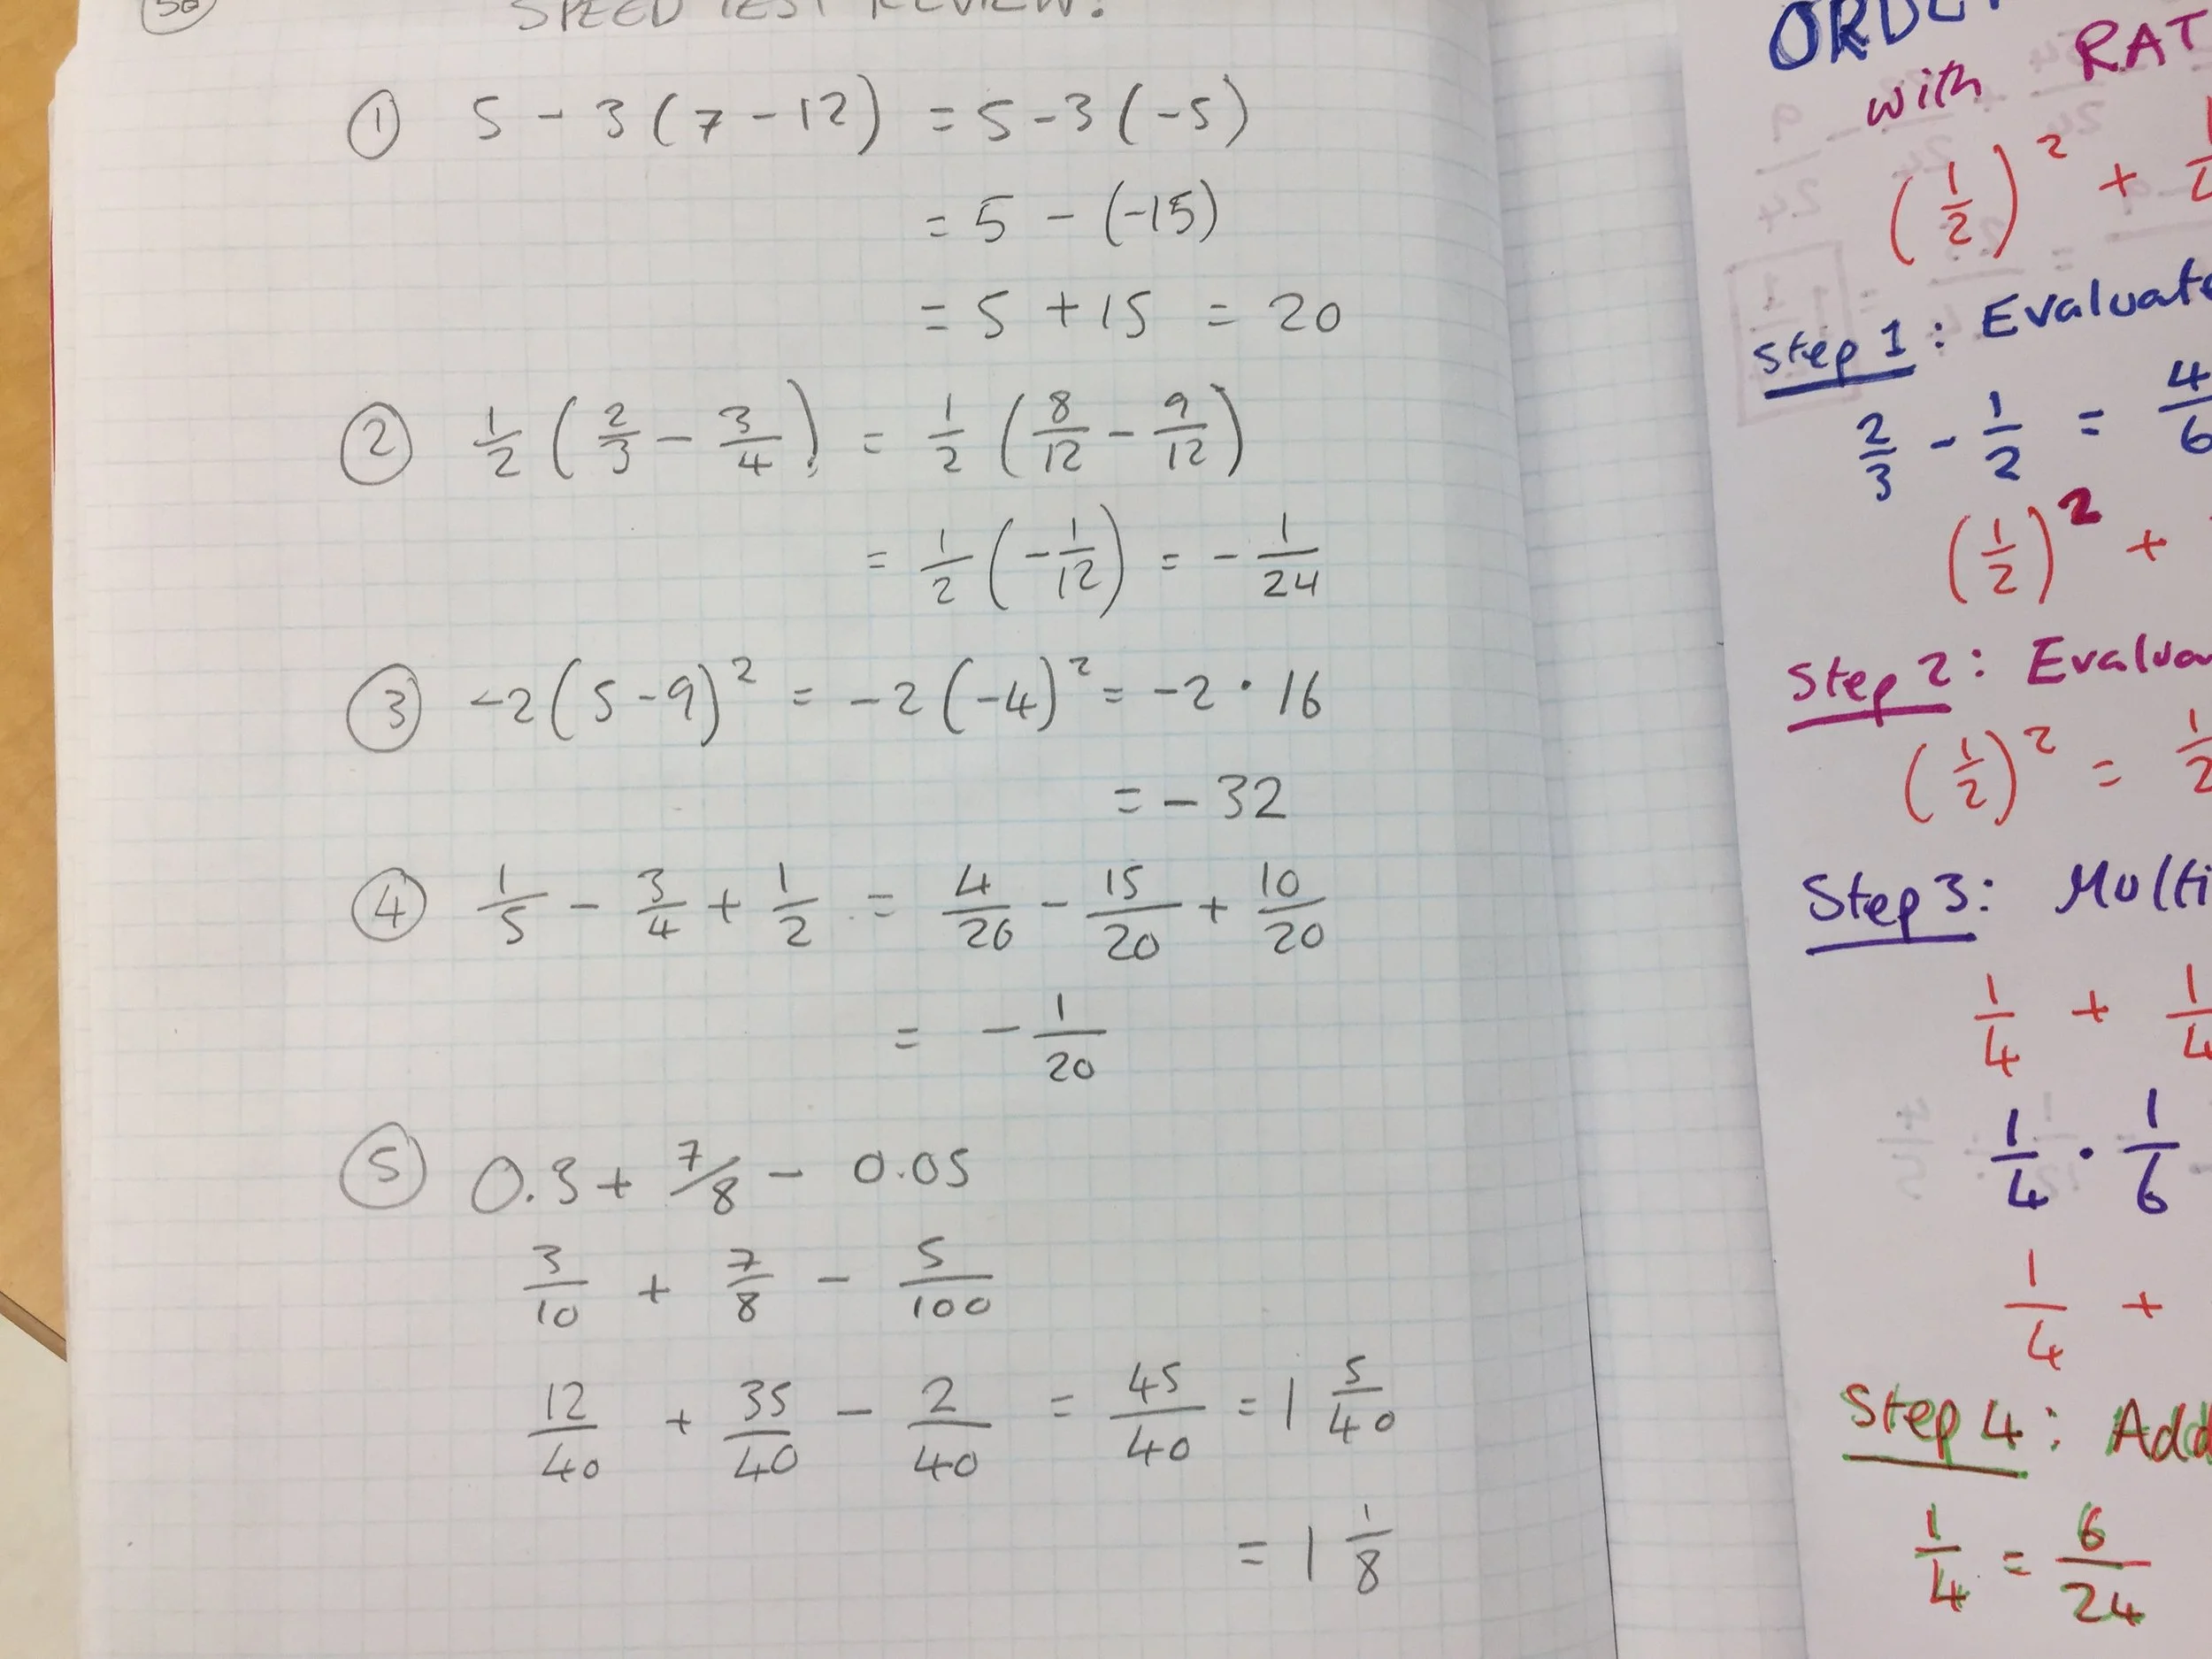 SPEED TEST REVIEW.
① 5 - 3(7 - 12) = 5 - 3(-5)
= 5 - (-15)
= 5 + 15 = 20
② 1/2 (2/3 - 3/4) = 1/2 (8/12 - 9/12)
= 1/2 (-1/12) = -1/24
③ -2(5-9)² = -2(-4)² = -2 · 16
= -32
④ 1/5 - 3/4 + 1/2 = 4/20 - 15/20 + 10/20
= -1/20
⑤ 0.3 + 7/8 - 0.05
3/10 + 7/8 - 5/100
12/40 + 35/40 - 2/40 = 45/40 = 1 5/40
= 1 1/8
with RAT
(1/2)² +
Step 1: Evaluate
2/3 - 1/2 = 4/6
(1/2)² +
Step 2: Evalua
(1/2)² = 1/2
Step 3: Multi
1/4 + 1/4
1/4 · 1/6
1/4 +
Step 4: Add
1/4 = 6/24